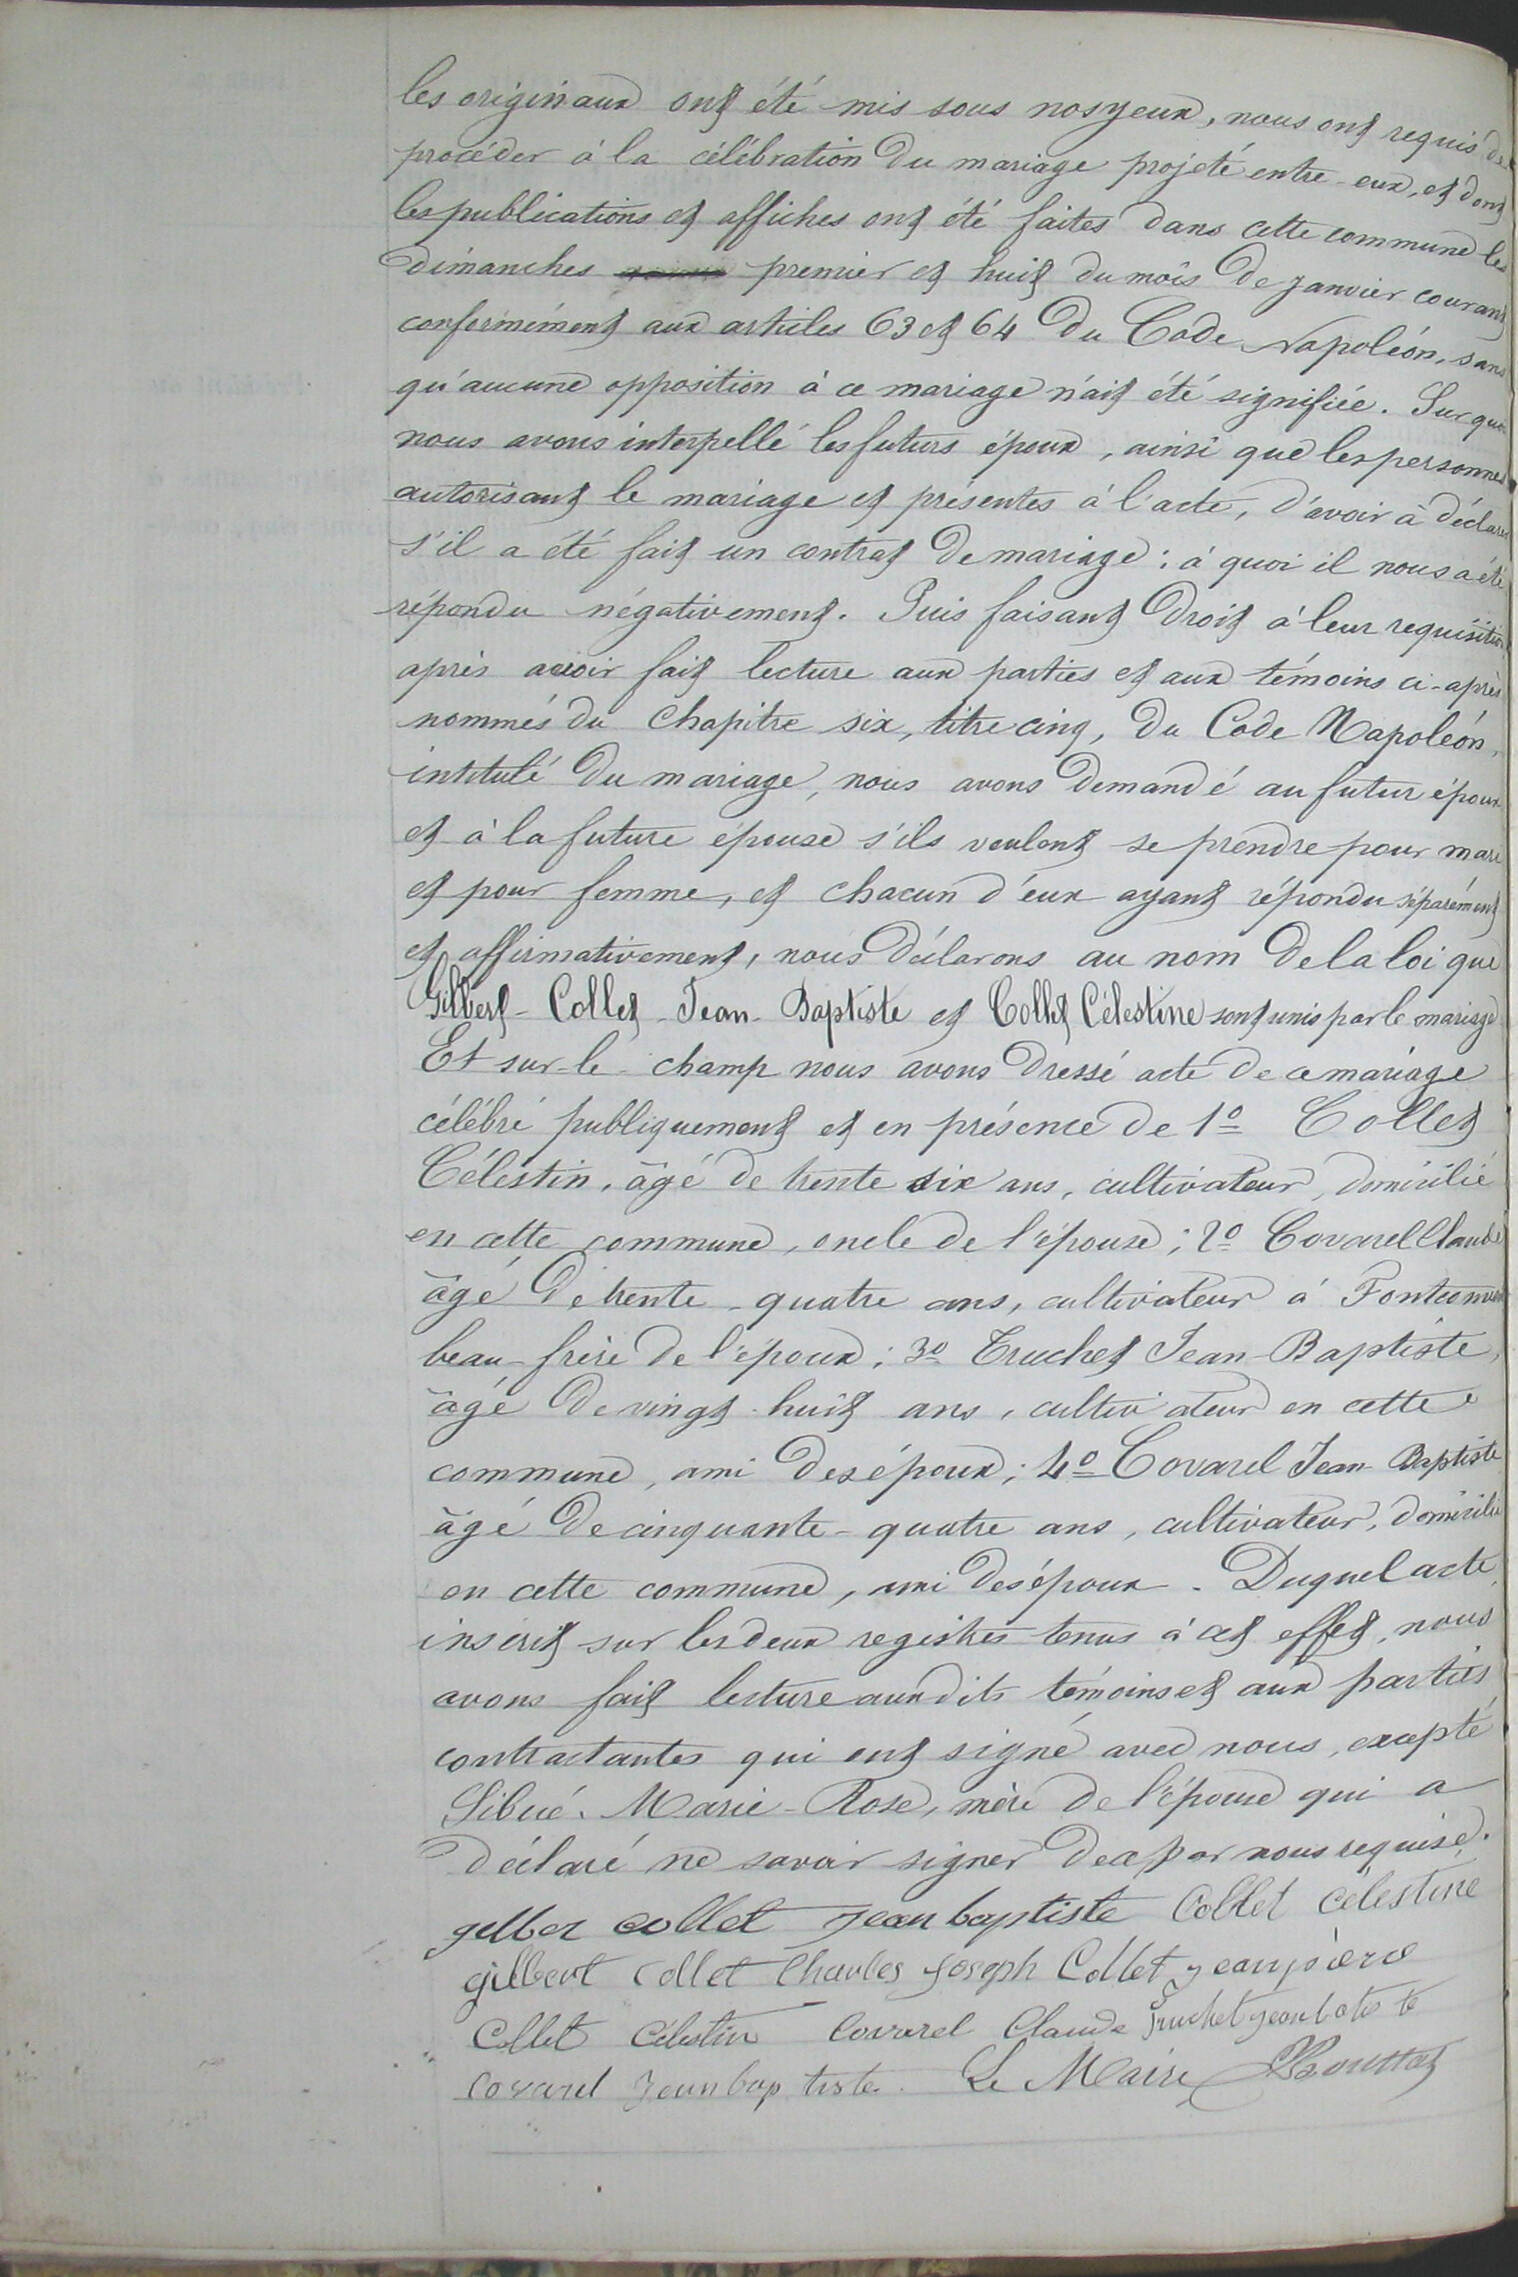 les originaux ont été mis sous nos yeux, nous ont requis de
procéder à la célébration du mariage projeté entre eux, et dont
les publications et affiches ont été faites dans cette commune les
dimanches premier et huit du mois de janvier courant
conformément aux articles 63 et 64 du Code Napoléon, sans
qu'aucune opposition à ce mariage n'ait été signifiée. Sur quoi
nous avons interpellé les futurs époux, ainsi que les personnes
autorisant le mariage et présentes à l'acte, d'avoir à déclarer
s'il a été fait un contrat de mariage : à quoi il nous a été
répondu négativement. Puis faisant droit à leur requisition
après avoir fait lecture aux parties et aux témoins ci-après
nommés du chapitre six, titre cinq, du Code Napoléon,
intitulé du mariage, nous avons demandé au futur époux
et à la future épouse s'ils veulent se prendre pour mari
et pour femme, et chacun d'eux ayant répondu séparément
et affirmativement, nous déclarons au nom de la loi que
Gilbert-Collet Jean-Baptiste et Collet Célestine sont unis par le mariage
Et sur-le-champ nous avons dressé acte de ce mariage
célébré publiquement et en présence de 1º Collet
Célestin, âgé de trente six ans, cultivateur, domicilié
en cette commune, oncle de l'épouse ; 2º Covarel Claude
âgé de trente-quatre ans, cultivateur à Fontcouverte
beau-frère de l'époux ; 3º Truchet Jean-Baptiste,
âgé de vingt-huit ans, cultivateur en cette
commune, ami des époux ; 4º Covarel Jean-Baptiste
âgé de cinquante-quatre ans, cultivateur, domicilié
en cette commune, ami des époux. Duquel acte,
inscrit sur les deux registres tenus à cet effet, nous
avons fait lecture auxdits témoins et aux parties
contractantes qui ont signé avec nous, excepté
Sibué Marie-Rose, mère de l'épouse qui a
déclaré ne savoir signer de ce par nous requise.
gilber collet jean baptiste Collet célestine
gilbert collet Charles joseph Collet jean pière
Collet Célestin Covarel Claude Truchet jean batiste
Covarel Jean baptiste. Le Maire